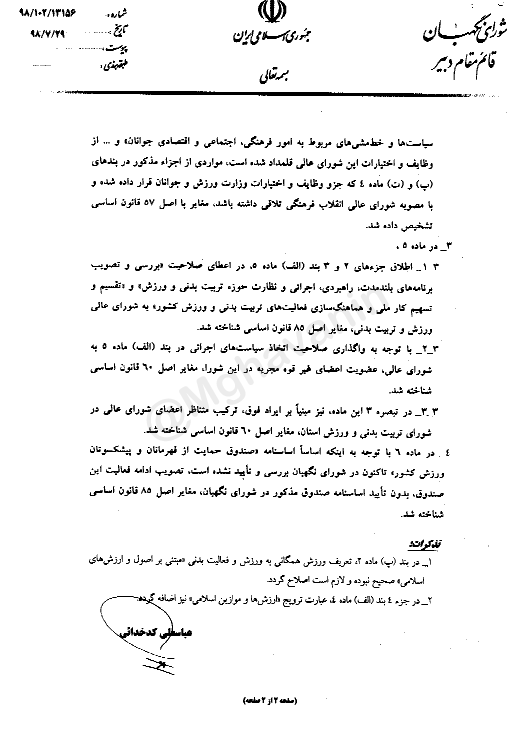 شورای نگهبان
قائم مقام دبیر
جمهوری اسلامی ایران
بسمه تعالی
شماره: ۹۸/۱۰۲/۱۳۱۵۶
تاریخ: ۹۸/۷/۲۹
پیوست:
طبقه‌بندی:
سیاست‌ها و خط‌مشی‌های مربوط به امور فرهنگی، اجتماعی و اقتصادی جوانان» و ... از
وظایف و اختیارات این شورای عالی قلمداد شده است، مواردی از اجزاء مذکور در بندهای
(پ) و (ت) ماده ٤ که جزو وظایف و اختیارات وزارت ورزش و جوانان قرار داده شده و
با مصوبه شورای عالی انقلاب فرهنگی تلاقی داشته باشد، مغایر با اصل ۵۷ قانون اساسی
تشخیص داده شد.
۳_ در ماده ۵ ،
۳_۱_ اطلاق جزءهای ۲ و ۳ بند (الف) ماده ۵، در اعطای صلاحیت «بررسی و تصویب
برنامه‌های بلندمدت، راهبردی، اجرائی و نظارت حوزه تربیت بدنی و ورزش» و «تقسیم و
تسهیم کار ملی و هماهنگ‌سازی فعالیت‌های تربیت بدنی و ورزش کشور» به شورای عالی
ورزش و تربیت بدنی، مغایر اصل ۸۵ قانون اساسی شناخته شد.
۳_۲_ با توجه به واگذاری صلاحیت اتخاذ سیاست‌های اجرائی در بند (الف) ماده ۵ به
شورای عالی، عضویت اعضای غیر قوه مجریه در این شورا، مغایر اصل ۶۰ قانون اساسی
شناخته شد.
۳_۳_ در تبصره ۳ این ماده، نیز مبنیاً بر ایراد فوق، ترکیب متناظر اعضای شورای عالی در
شورای تربیت بدنی و ورزش استان، مغایر اصل ۶۰ قانون اساسی شناخته شد.
٤_ در ماده ۶ با توجه به اینکه اساساً اساسنامه «صندوق حمایت از قهرمانان و پیشکسوتان
ورزش کشور» تاکنون در شورای نگهبان بررسی و تأیید نشده است، تصویب ادامه فعالیت این
صندوق، بدون تأیید اساسنامه صندوق مذکور در شورای نگهبان، مغایر اصل ۸۵ قانون اساسی
شناخته شد.
تذکرات:
۱_ در بند (پ) ماده ۲، تعریف ورزش همگانی به ورزش و فعالیت بدنی «مبتنی بر اصول و ارزش‌های
اسلامی» صحیح نبوده و لازم است اصلاح گردد.
۲_ در جزء ٤ بند (الف) ماده ٤، عبارت ترویج «ارزش‌ها و موازین اسلامی» نیز اضافه گردد.
عباسعلی کدخدائی
(صفحه ۲ از ۲ صفحه)
@Mghavanin